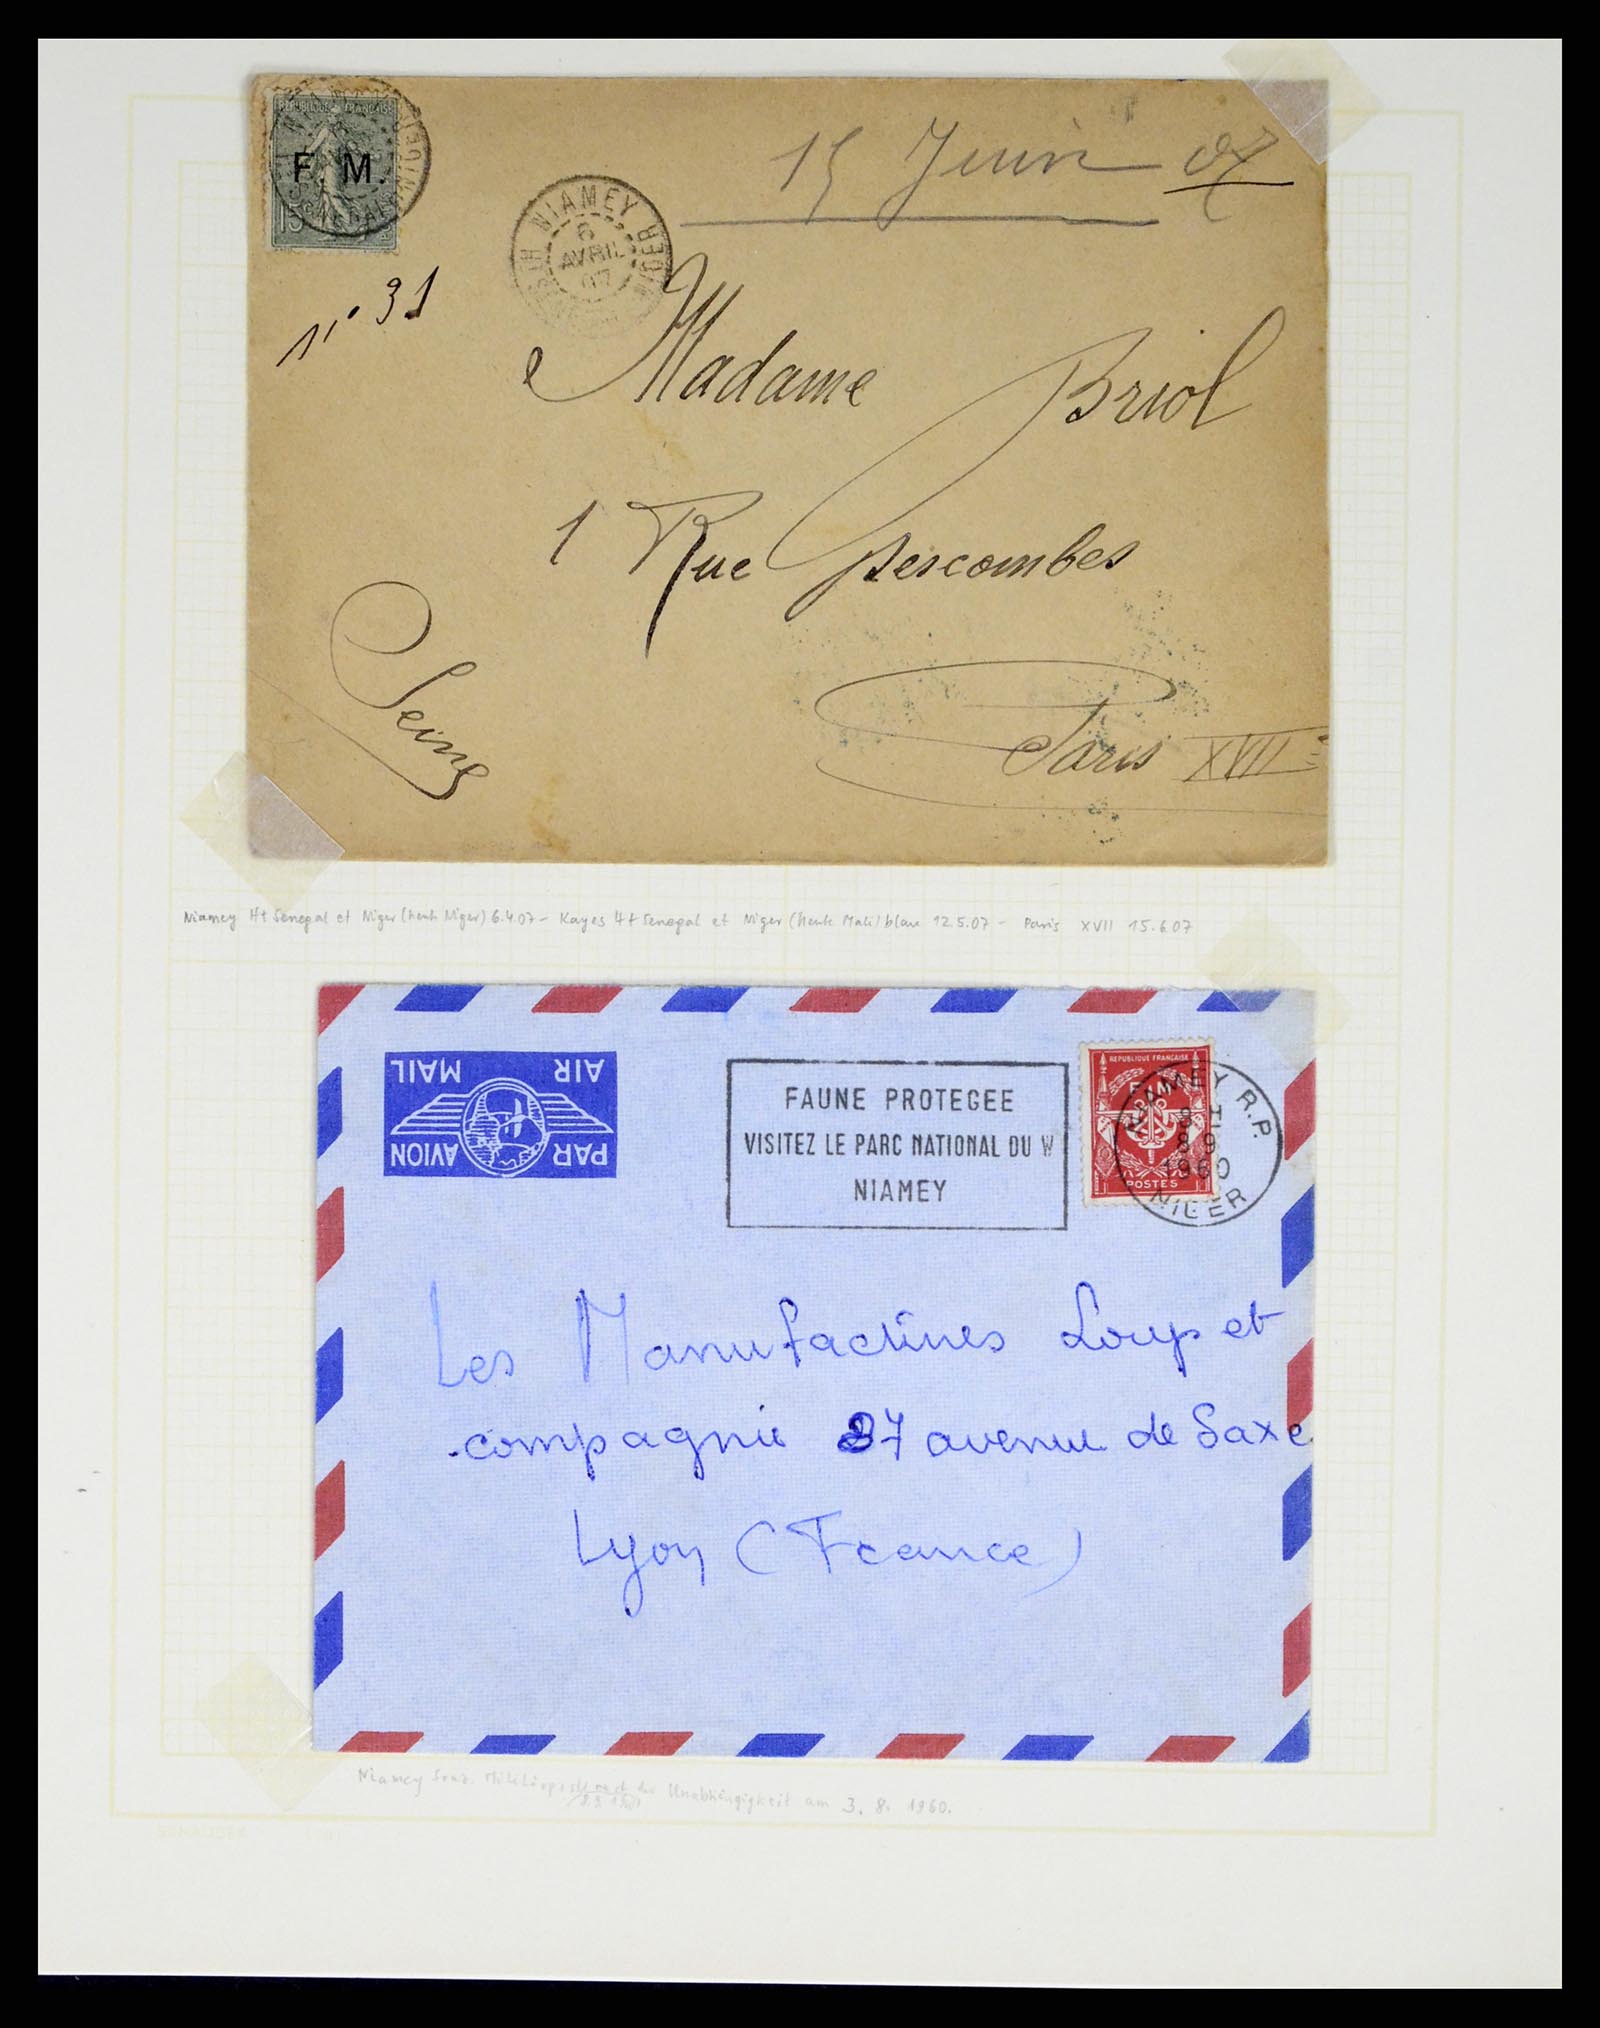 REPUBLIQUE FRANÇAISE
F. M.
15
15 Juin 07
NIAMEY
6
AVRIL
07
n° 31
Madame Briol
1 Rue Descombes
Seine
Paris XVII e
Niamey Ht Senegal et Niger (heute Niger) 6.4.07 - Kayes Ht Senegal et Niger (heute Mali) blau 12.5.07 - Paris XVII 15.6.07
AIR MAIL
PAR AVION
FAUNE PROTEGEE
VISITEZ LE PARC NATIONAL DU W
NIAMEY
REPUBLIQUE FRANÇAISE
POSTES
NIAMEY R.P.
8 H
8-9
1960
NIGER
Les Manufactures Loup et
compagnie 27 avenue de Saxe
Lyon (France)
Niamey Unabhängigkeit am 3. 8. 1960.